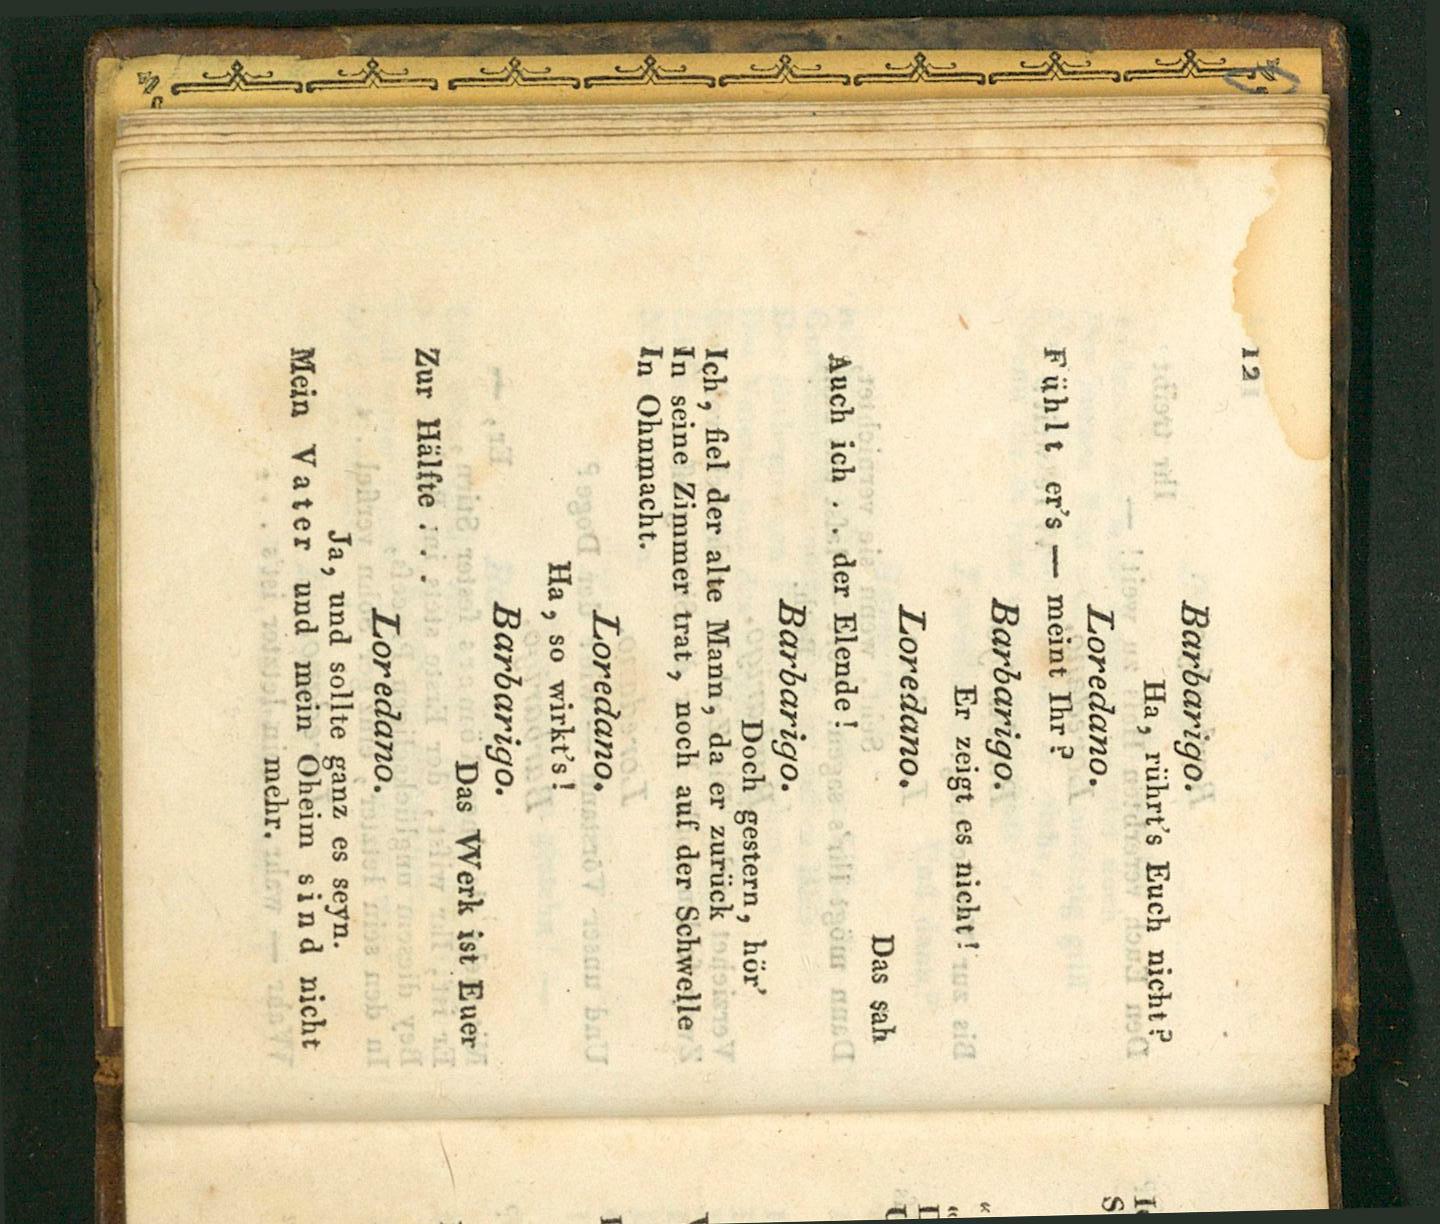 12
Barbarigo.
Ha, rührt's Euch nicht?
Loredano.
Fühlt er's — meint Ihr?
Barbarigo.
Er zeigt es nicht!
Loredano.
Das sah
Auch ich . . der Elende!
Barbarigo.
Doch gestern, hör'
Ich, fiel der alte Mann, da er zurück
In seine Zimmer trat, noch auf der Schwelle
In Ohnmacht.
Loredano.
Ha, so wirkt's!
Barbarigo.
Das Werk ist Euer
Zur Hälfte . . .
Loredano.
Ja, und sollte ganz es seyn.
Mein Vater und mein Oheim sind nicht
mehr.